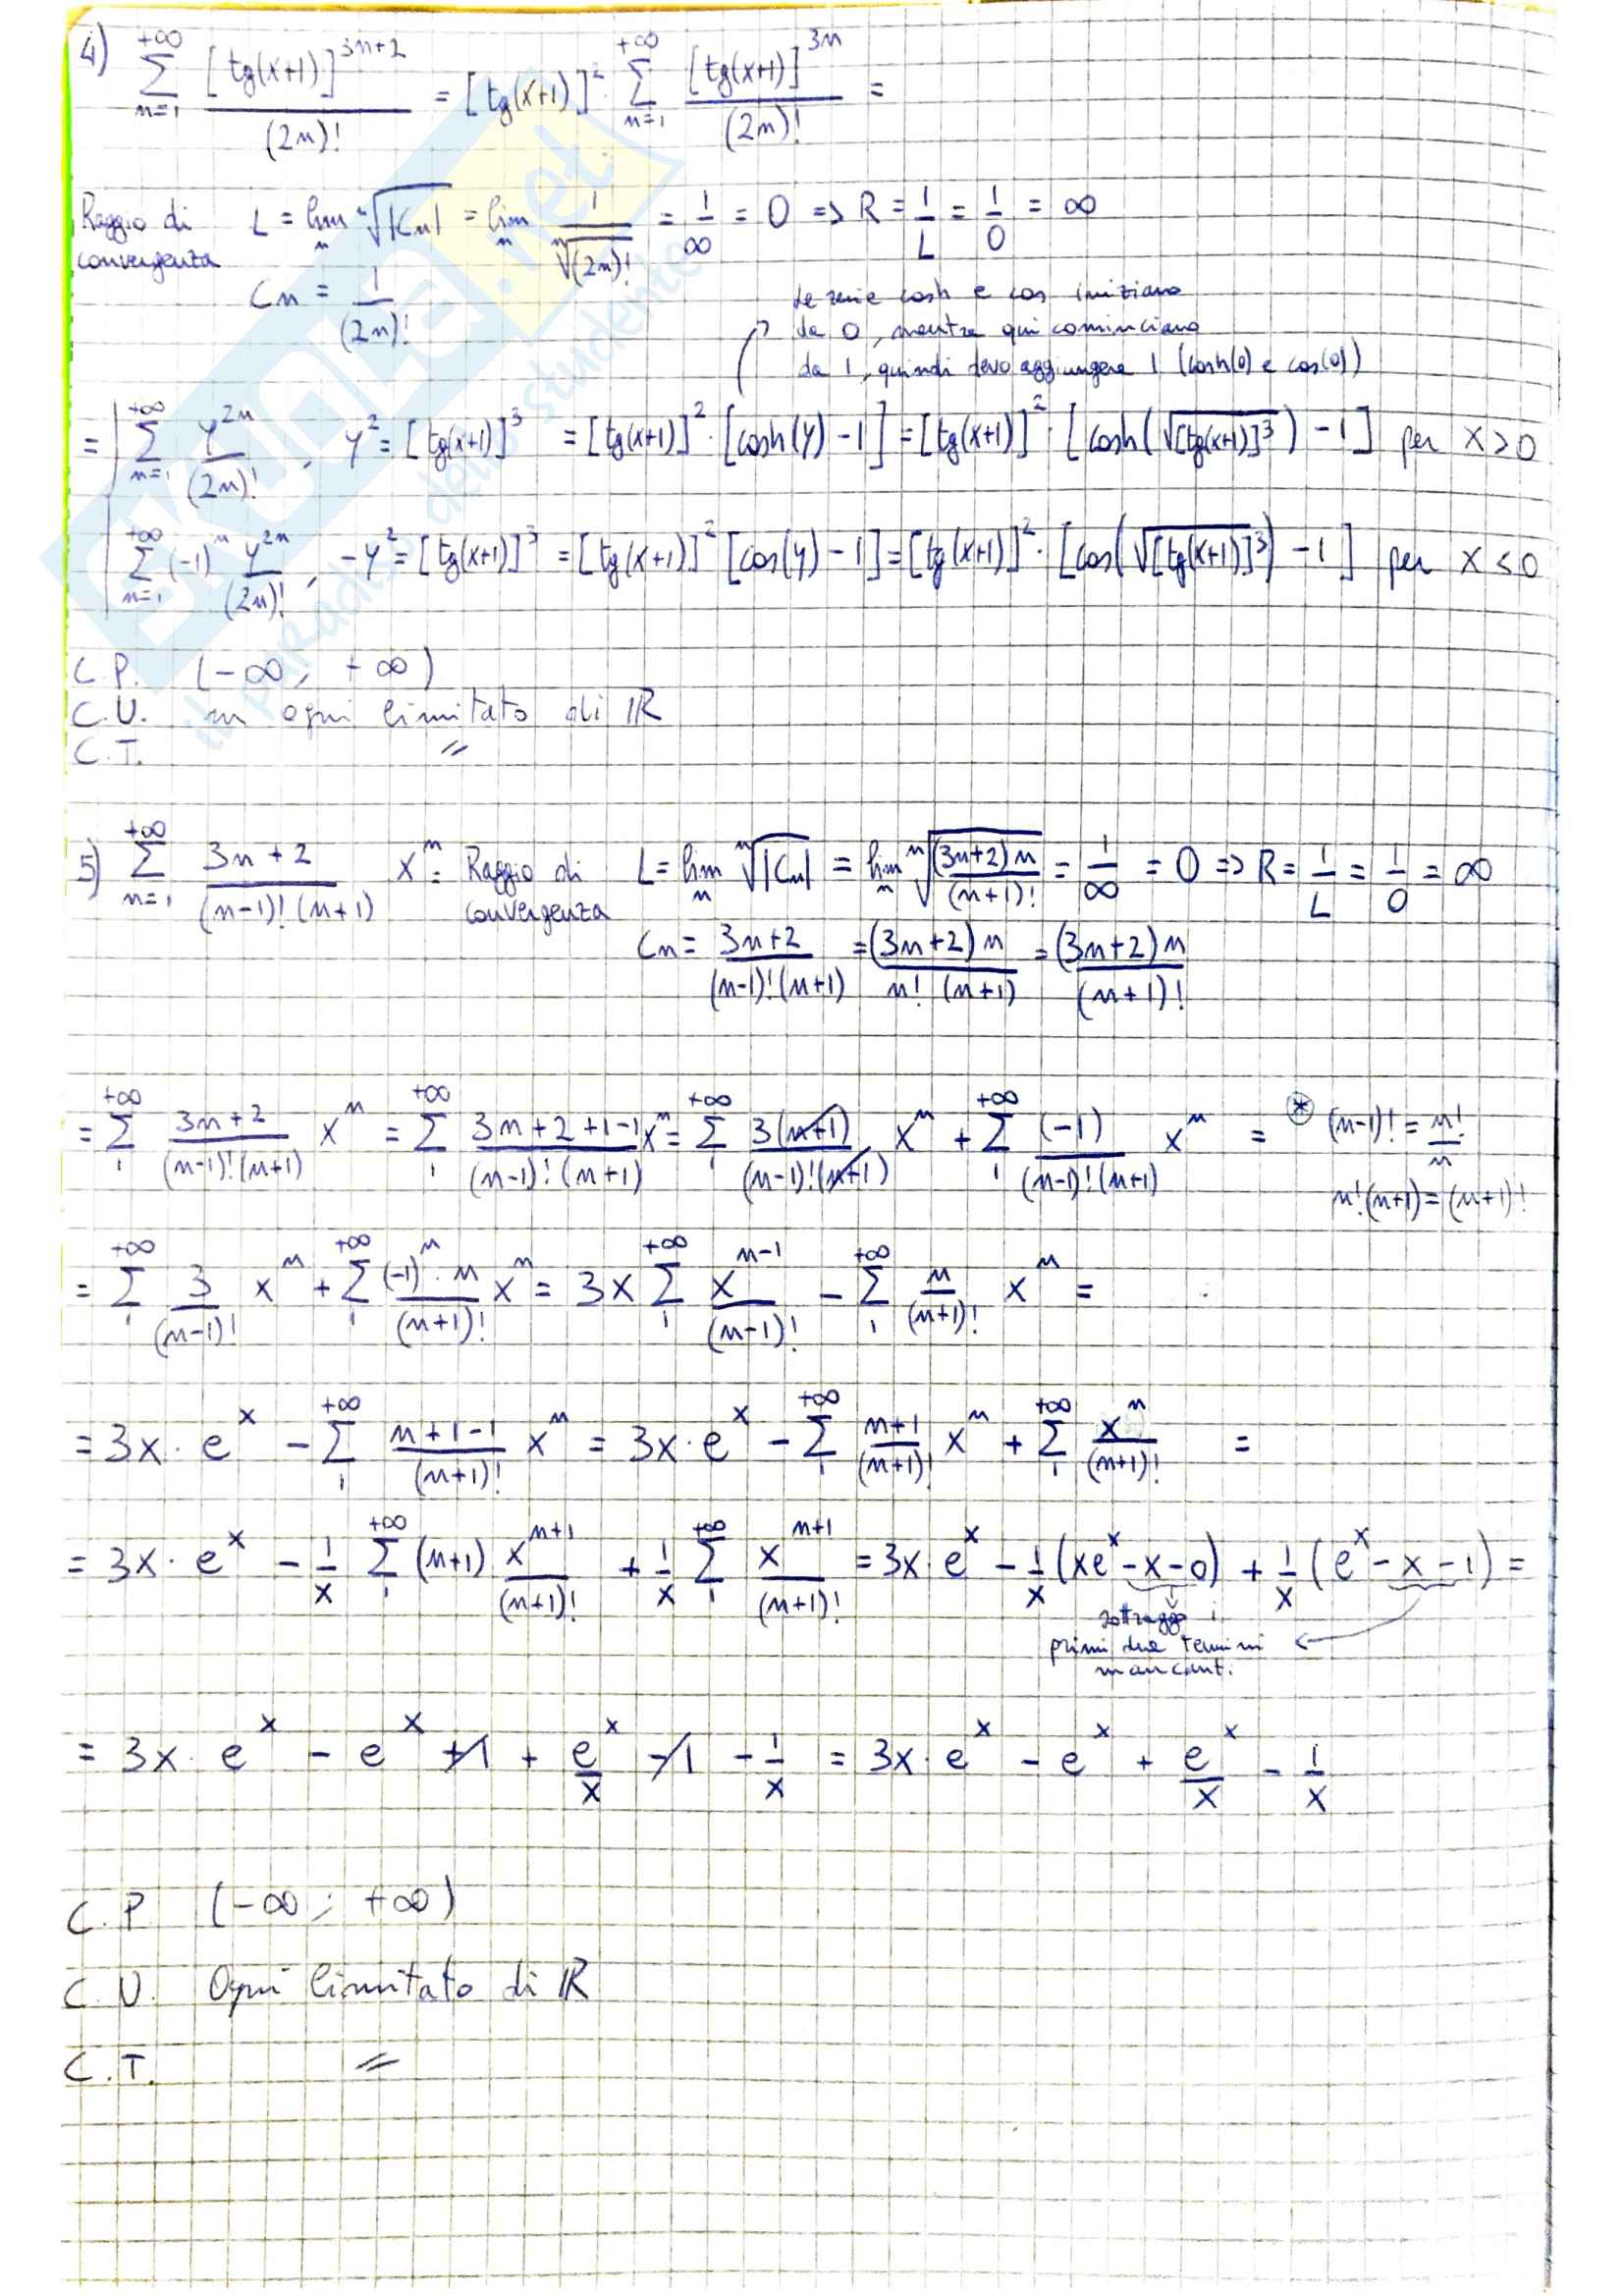 4) \sum_{n=1}^{+∞} \frac{[tg(x+1)]^{3n+2}}{(2n)!} = [tg(x+1)]^2 · \sum_{n=1}^{+∞} \frac{[tg(x+1)]^{3n}}{(2n)!} =
Raggio di convergenza L = lim_n \sqrt[n]{|Cn|} = lim_n \frac{1}{\sqrt[n]{(2n)!}} = \frac{1}{∞} = 0 => R = \frac{1}{L} = \frac{1}{0} = ∞
Cn = \frac{1}{(2n)!}
le serie cosh e cos iniziano
da 0, mentre qui cominciano
da 1, quindi devo aggiungere 1 (cosh(0) e cos(0))
= \sum_{n=1}^{+∞} \frac{y^{2n}}{(2n)!}, y^2 = [tg(x+1)]^3 = [tg(x+1)]^2 · [cosh(y) - 1] = [tg(x+1)]^2 · [cosh(\sqrt{[tg(x+1)]^3}) - 1] per x > 0
\sum_{n=1}^{+∞} (-1)^n \frac{y^{2n}}{(2n)!}, -y^2 = [tg(x+1)]^3 = [tg(x+1)]^2 [cos(y) - 1] = [tg(x+1)]^2 · [cos(\sqrt{[tg(x+1)]^3}) - 1] per x ≤ 0
C.P. (-∞; +∞)
C.U. in ogni limitato di ℝ
C.T. //
5) \sum_{n=1}^{+∞} \frac{3n+2}{(n-1)!(n+1)} x^n = Raggio di convergenza L = lim_n \sqrt[n]{|Cn|} = lim_n \sqrt[n]{\frac{(3n+2)n}{(n+1)!}} = \frac{1}{∞} = 0 => R = \frac{1}{L} = \frac{1}{0} = ∞
Cn = \frac{3n+2}{(n-1)!(n+1)} = \frac{(3n+2)n}{n!(n+1)} = \frac{(3n+2)n}{(n+1)!}
= \sum_{1}^{+∞} \frac{3n+2}{(n-1)!(n+1)} x^n = \sum_{1}^{+∞} \frac{3n+2+1-1}{(n-1)!(n+1)} x^n = \sum_{1}^{+∞} \frac{3(n+1)}{(n-1)!(n+1)} x^n + \sum_{1}^{+∞} \frac{(-1)}{(n-1)!(n+1)} x^n = ⊛ (n-1)! = \frac{n!}{n}
n!(n+1) = (n+1)!
= \sum_{1}^{+∞} \frac{3}{(n-1)!} x^n + \sum_{1}^{+∞} \frac{(-1)^n · n}{(n+1)!} x^n = 3x \sum_{1}^{+∞} \frac{x^{n-1}}{(n-1)!} - \sum_{1}^{+∞} \frac{n}{(n+1)!} x^n =
= 3x · e^x - \sum_{1}^{+∞} \frac{n+1-1}{(n+1)!} x^n = 3x · e^x - \sum_{1}^{+∞} \frac{n+1}{(n+1)!} x^n + \sum_{1}^{+∞} \frac{x^n}{(n+1)!} =
= 3x · e^x - \frac{1}{x} \sum_{1}^{+∞} (n+1) \frac{x^{n+1}}{(n+1)!} + \frac{1}{x} \sum_{1}^{+∞} \frac{x^{n+1}}{(n+1)!} = 3x · e^x - \frac{1}{x} (xe^x - x - 0) + \frac{1}{x} (e^x - x - 1) =
sottraggo i
primi due termini
mancanti
= 3x · e^x - e^x + 1 + \frac{e^x}{x} - 1 - \frac{1}{x} = 3x · e^x - e^x + \frac{e^x}{x} - \frac{1}{x}
C.P (-∞; +∞)
C.U. Ogni limitato di ℝ
C.T. //